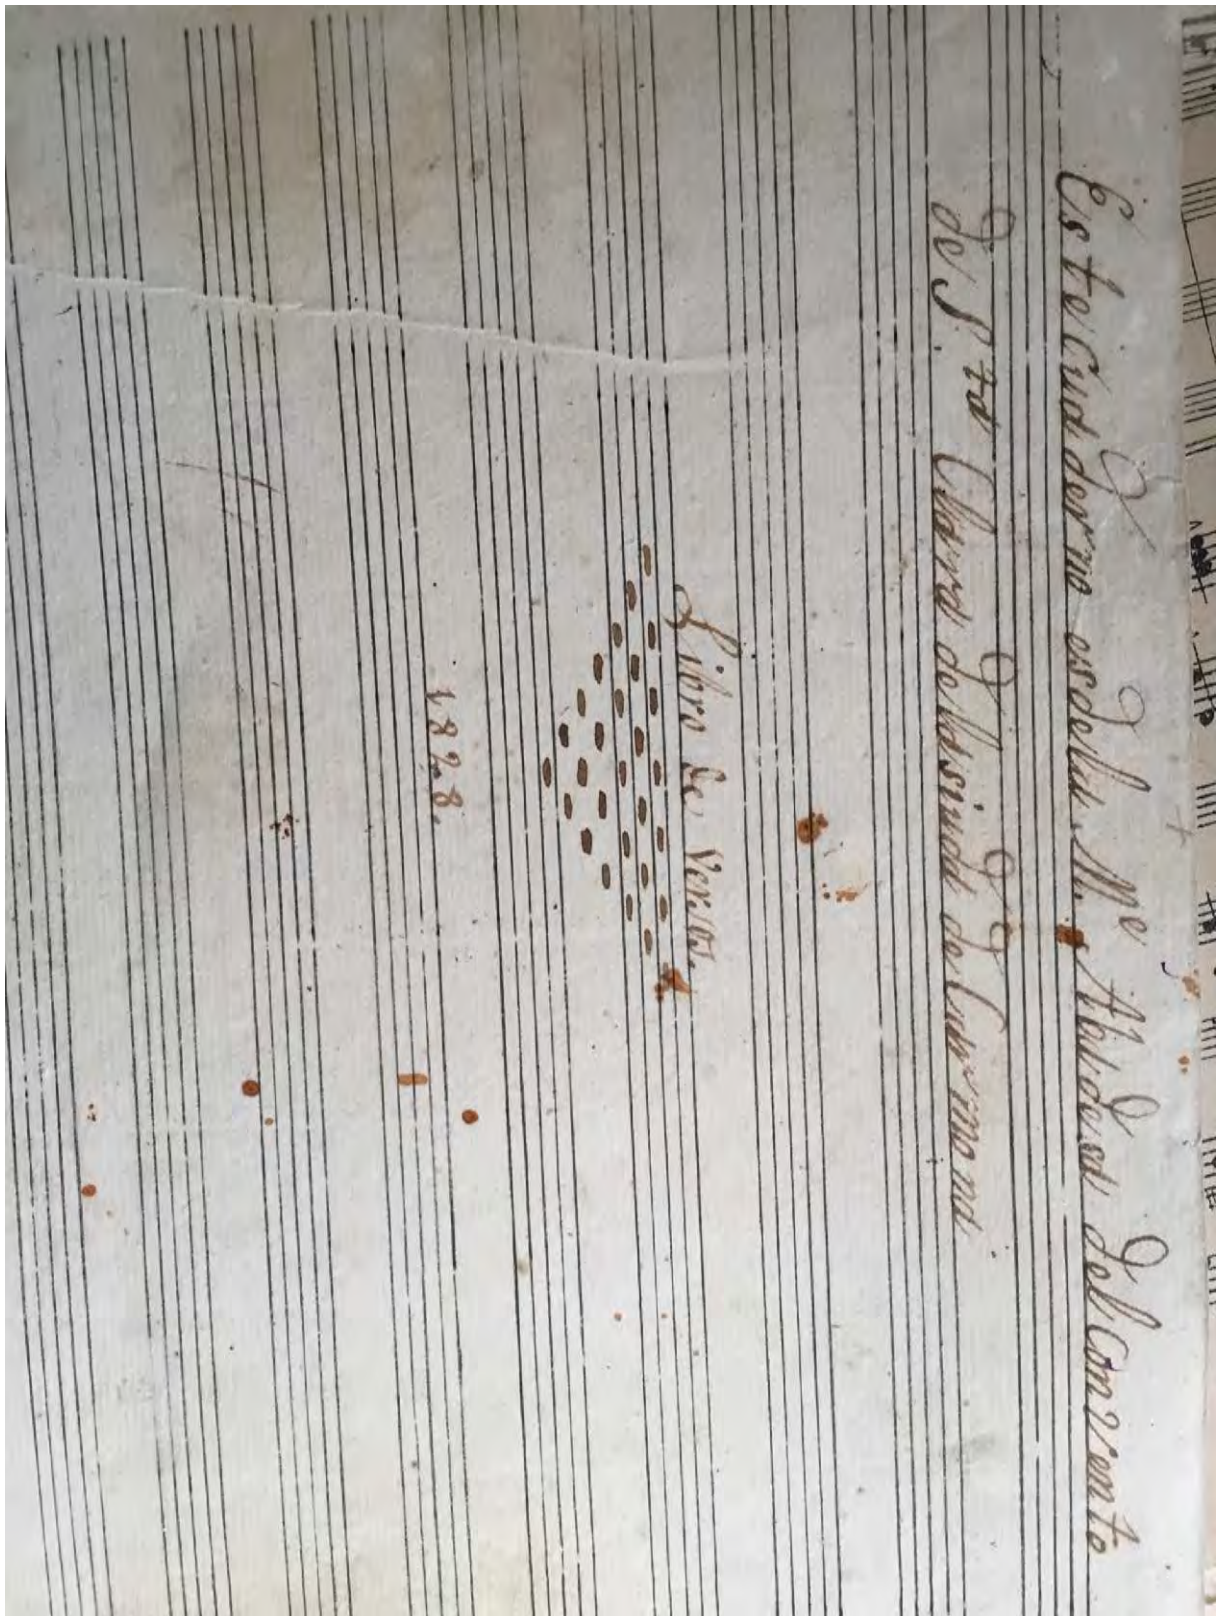 Este cuadderno es dela M.e Abadesa del Convento
de S.ta Clara delasiuda de Carmona
Libro de Versos.
1828.